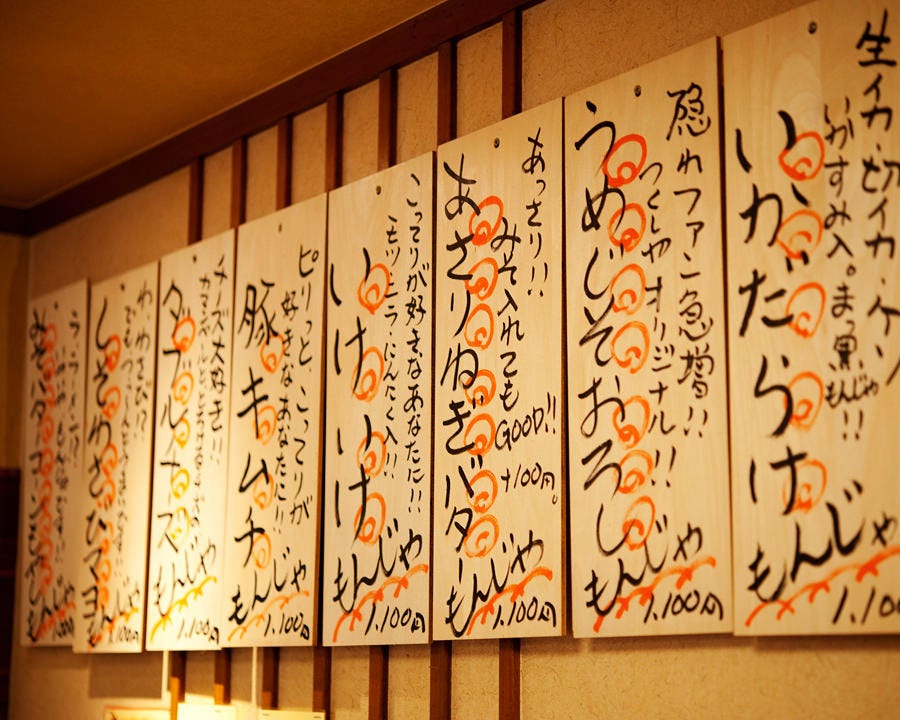 生イカ・切イカ・ゲソ
いかすみ入。まっ黒もんじゃ!!
いかだらけ
もんじゃ
隠れファン急増!!
つくしやオリジナル!!
うめじそおろし
もんじゃ
1.100円
あっさり!!
みそ入れてもGOOD!!
+100円。
あさりねぎバター
もんじゃ
1.100円
こってりが好きなあなたに!!
モツ ニラ にんにく入!!
いけいけ
もんじゃ
1.100円
ピリっと、こってりが
好きなあなたに!!
豚キムチ
もんじゃ
1.100円
チーズ大好き!!
ダブルチーズ
もんじゃ
1.100円
わ、わさび!?
しそわさびマヨ
もんじゃ
1.100円
もんじゃ